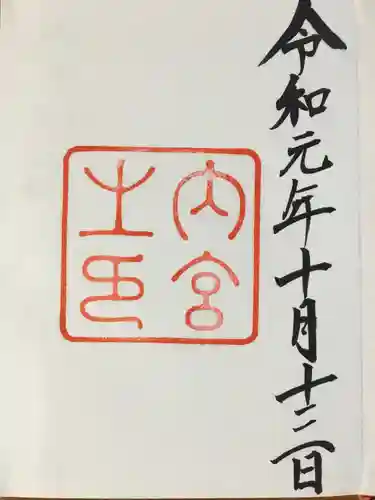 令和元年十月十二日
内宮
之印